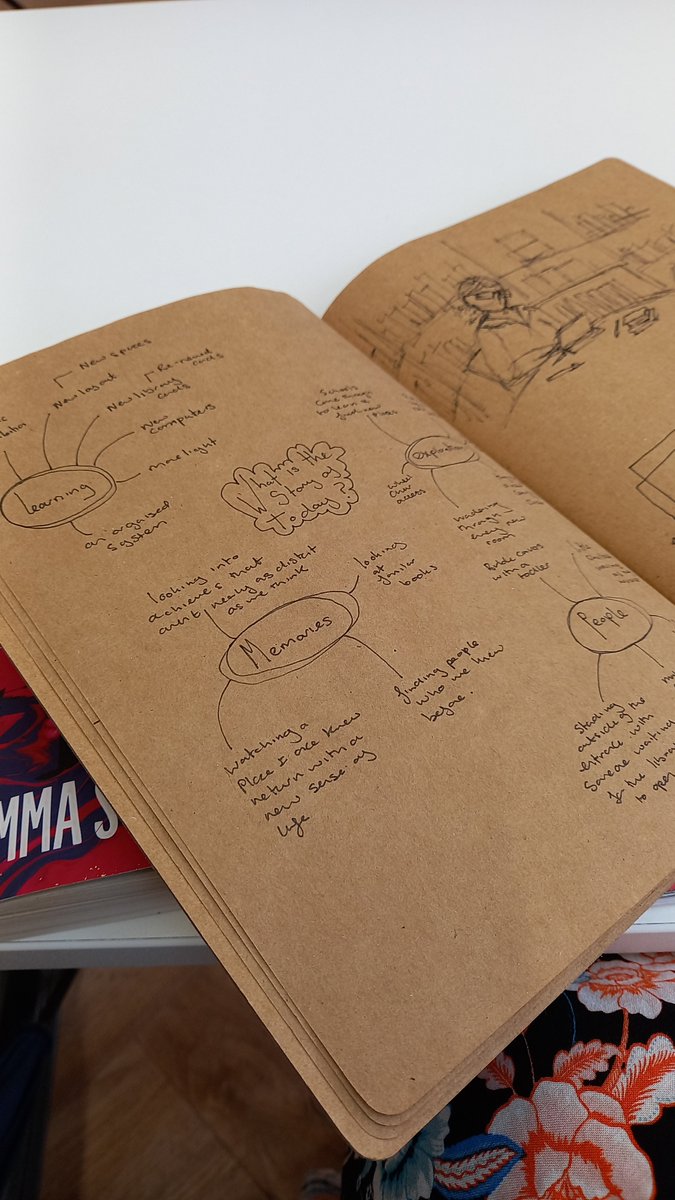 New spaces
New layout
Re-newed
cards
New library
cards
New
computers
more light
learning
an organised
system
What is the
Story of
today?
Schools
come through
to learn &
find new
places
explorat
wheel
chair
access
wandering
through
every new
room
looking into
achieves that
arent nearly as distint
as we think
looking
at
similar
books
Memories
finding people
who we knew
before.
watching a
place I once knew
return with a
new sense of
life
with a
People
Standing
outside of the
entrance with
someone waiting
for the libra
to open
MMA S